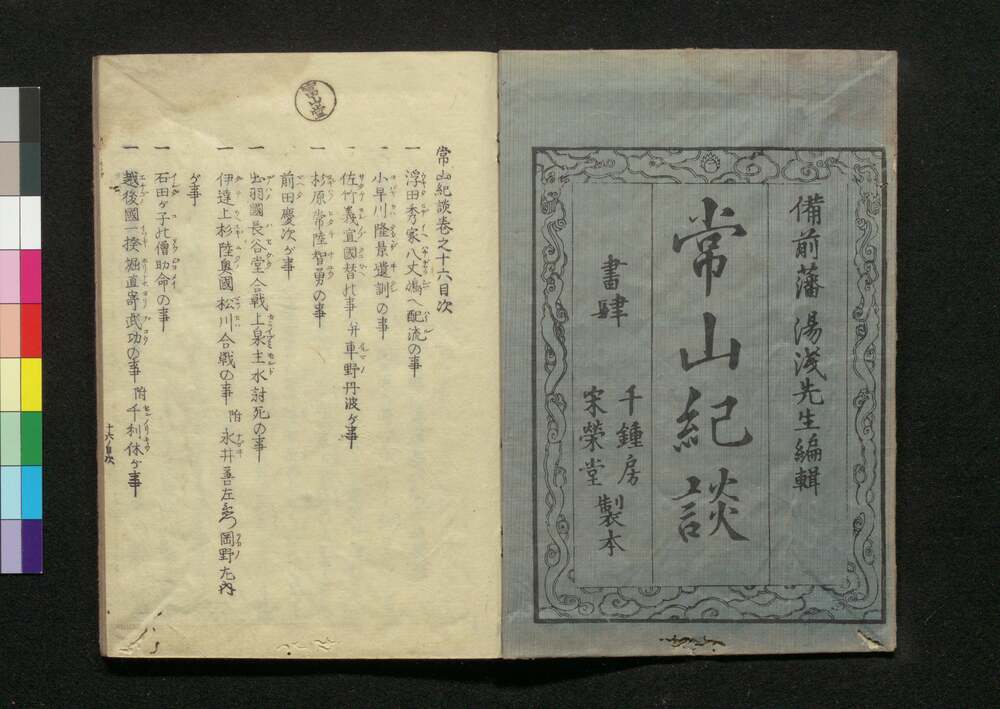 備前藩 湯浅先生編輯
常山紀談
書肆
千鍾房
宋榮堂
製本
常山紀談巻之十六目次
一 浮田秀家八丈嶋へ配流の事
一 小早川隆景遺訓の事
一 佐竹義宣國替の事 并車野丹波が事
一 杉原常陸智勇の事
一 前田慶次が事
一 出羽國長谷堂合戰上泉主水討死の事
一 伊達上杉陸奥國松川合戰の事 附 永井善左衛門岡野左内
が事
一 石田が子の僧助命の事
一 越後國一揆堀直寄武功の事 附 千利休が事
十六ノ目次